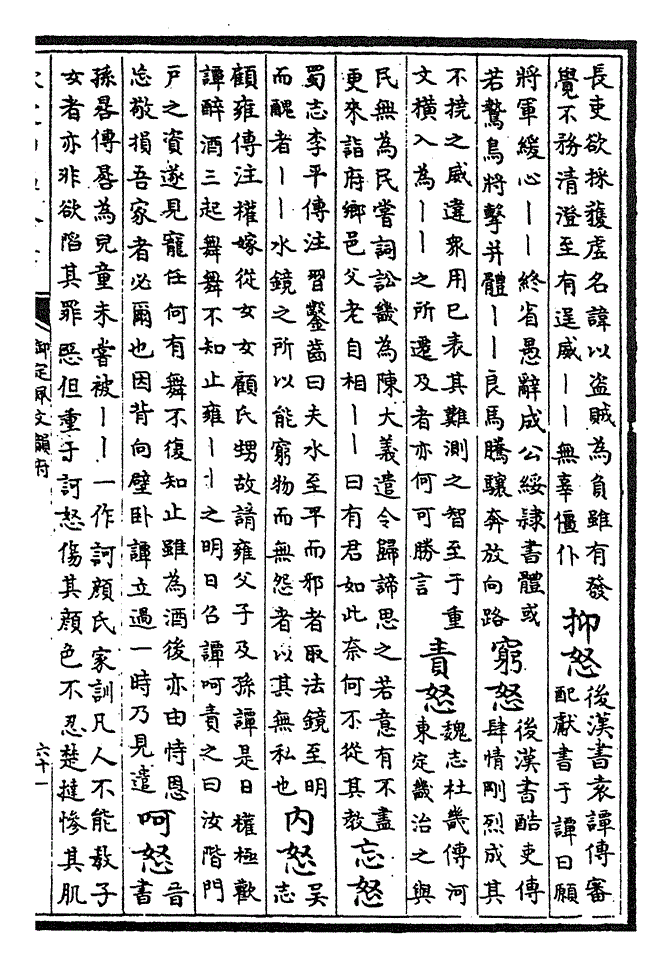 長吏欲採獲虛名諱以盜賊為負雖有發
覺不務清澄至有逞威丨丨無辜僵仆
抑怒
後漢書袁譚傳審
配獻書于譚曰願
將軍緩心丨丨終省愚辭成公綏隸書體或
若鷙鳥將擊并體丨丨良馬騰驤奔放向路
窮怒
後漢書酷吏傳
肆情剛烈成其
不撓之威違衆用已表其難測之智至于重
文橫入為丨丨之所遷及者亦何可勝言
責怒
魏志杜畿傳河
東定畿治之與
民無為民嘗詞訟畿為陳大義遣令歸諦思之若意有不盡
更來詣府鄉邑父老自相丨丨曰有君如此奈何不從其教
忘怒
蜀志李平傳注習鑿齒曰夫水至平而邪者取法鏡至明
而醜者丨丨水鏡之所以能窮物而無怨者以其無私也
內怒
吳
志
顧雍傳注權嫁從女女顧氏甥故請雍父子及孫譚是日權極歡
譚醉酒三起舞舞不知止雍丨丨之明日召譚呵責之曰汝階門
戸之資遂見寵任何有舞不復知止雖為酒後亦由恃恩
忘敬損吾家者必爾也因背向壁卧譚立過一時乃見遣
呵怒
晉
書
孫晷傳晷為兒童未嘗被丨丨一作訶顔氏家訓凡人不能教子
女者亦非欲陷其罪惡但重于訶怒傷其顔色不忍楚撻慘其肌
御定佩文韻府
六十一